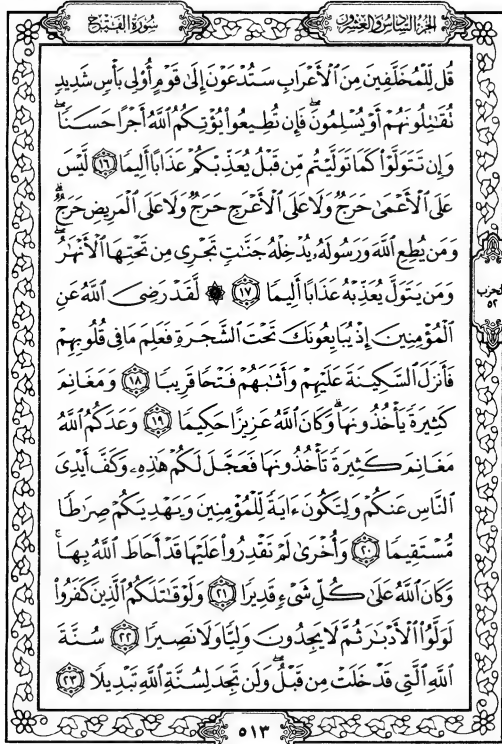 سُورَةُ الفَتْحِ
الجُزءُ السَّادِسُ وَالعِشْرُونَ
قُل لِّلْمُخَلَّفِينَ مِنَ ٱلْأَعْرَابِ سَتُدْعَوْنَ إِلَىٰ قَوْمٍ أُو۟لِى بَأْسٍ شَدِيدٍ
تُقَٰتِلُونَهُمْ أَوْ يُسْلِمُونَ ۖ فَإِن تُطِيعُوا۟ يُؤْتِكُمُ ٱللَّهُ أَجْرًا حَسَنًا ۖ
وَإِن تَتَوَلَّوْا۟ كَمَا تَوَلَّيْتُم مِّن قَبْلُ يُعَذِّبْكُمْ عَذَابًا أَلِيمًا ١٦ لَّيْسَ
عَلَى ٱلْأَعْمَىٰ حَرَجٌ وَلَا عَلَى ٱلْأَعْرَجِ حَرَجٌ وَلَا عَلَى ٱلْمَرِيضِ حَرَجٌ ۗ
وَمَن يُطِعِ ٱللَّهَ وَرَسُولَهُۥ يُدْخِلْهُ جَنَّٰتٍ تَجْرِى مِن تَحْتِهَا ٱلْأَنْهَٰرُ ۖ
وَمَن يَتَوَلَّ يُعَذِّبْهُ عَذَابًا أَلِيمًا ١٧ ۞ لَّقَدْ رَضِىَ ٱللَّهُ عَنِ
ٱلْمُؤْمِنِينَ إِذْ يُبَايِعُونَكَ تَحْتَ ٱلشَّجَرَةِ فَعَلِمَ مَا فِى قُلُوبِهِمْ
فَأَنزَلَ ٱلسَّكِينَةَ عَلَيْهِمْ وَأَثَٰبَهُمْ فَتْحًا قَرِيبًا ١٨ وَمَغَانِمَ
كَثِيرَةً يَأْخُذُونَهَا ۗ وَكَانَ ٱللَّهُ عَزِيزًا حَكِيمًا ١٩ وَعَدَكُمُ ٱللَّهُ
مَغَانِمَ كَثِيرَةً تَأْخُذُونَهَا فَعَجَّلَ لَكُمْ هَٰذِهِۦ وَكَفَّ أَيْدِىَ
ٱلنَّاسِ عَنكُمْ وَلِتَكُونَ ءَايَةً لِّلْمُؤْمِنِينَ وَيَهْدِيَكُمْ صِرَٰطًا
مُّسْتَقِيمًا ٢٠ وَأُخْرَىٰ لَمْ تَقْدِرُوا۟ عَلَيْهَا قَدْ أَحَاطَ ٱللَّهُ بِهَا ۚ
وَكَانَ ٱللَّهُ عَلَىٰ كُلِّ شَىْءٍ قَدِيرًا ٢١ وَلَوْ قَٰتَلَكُمُ ٱلَّذِينَ كَفَرُوا۟
لَوَلَّوُا۟ ٱلْأَدْبَٰرَ ثُمَّ لَا يَجِدُونَ وَلِيًّا وَلَا نَصِيرًا ٢٢ سُنَّةَ
ٱللَّهِ ٱلَّتِى قَدْ خَلَتْ مِن قَبْلُ ۖ وَلَن تَجِدَ لِسُنَّةِ ٱللَّهِ تَبْدِيلًا ٢٣
الحزب
٥٢
٥١٣